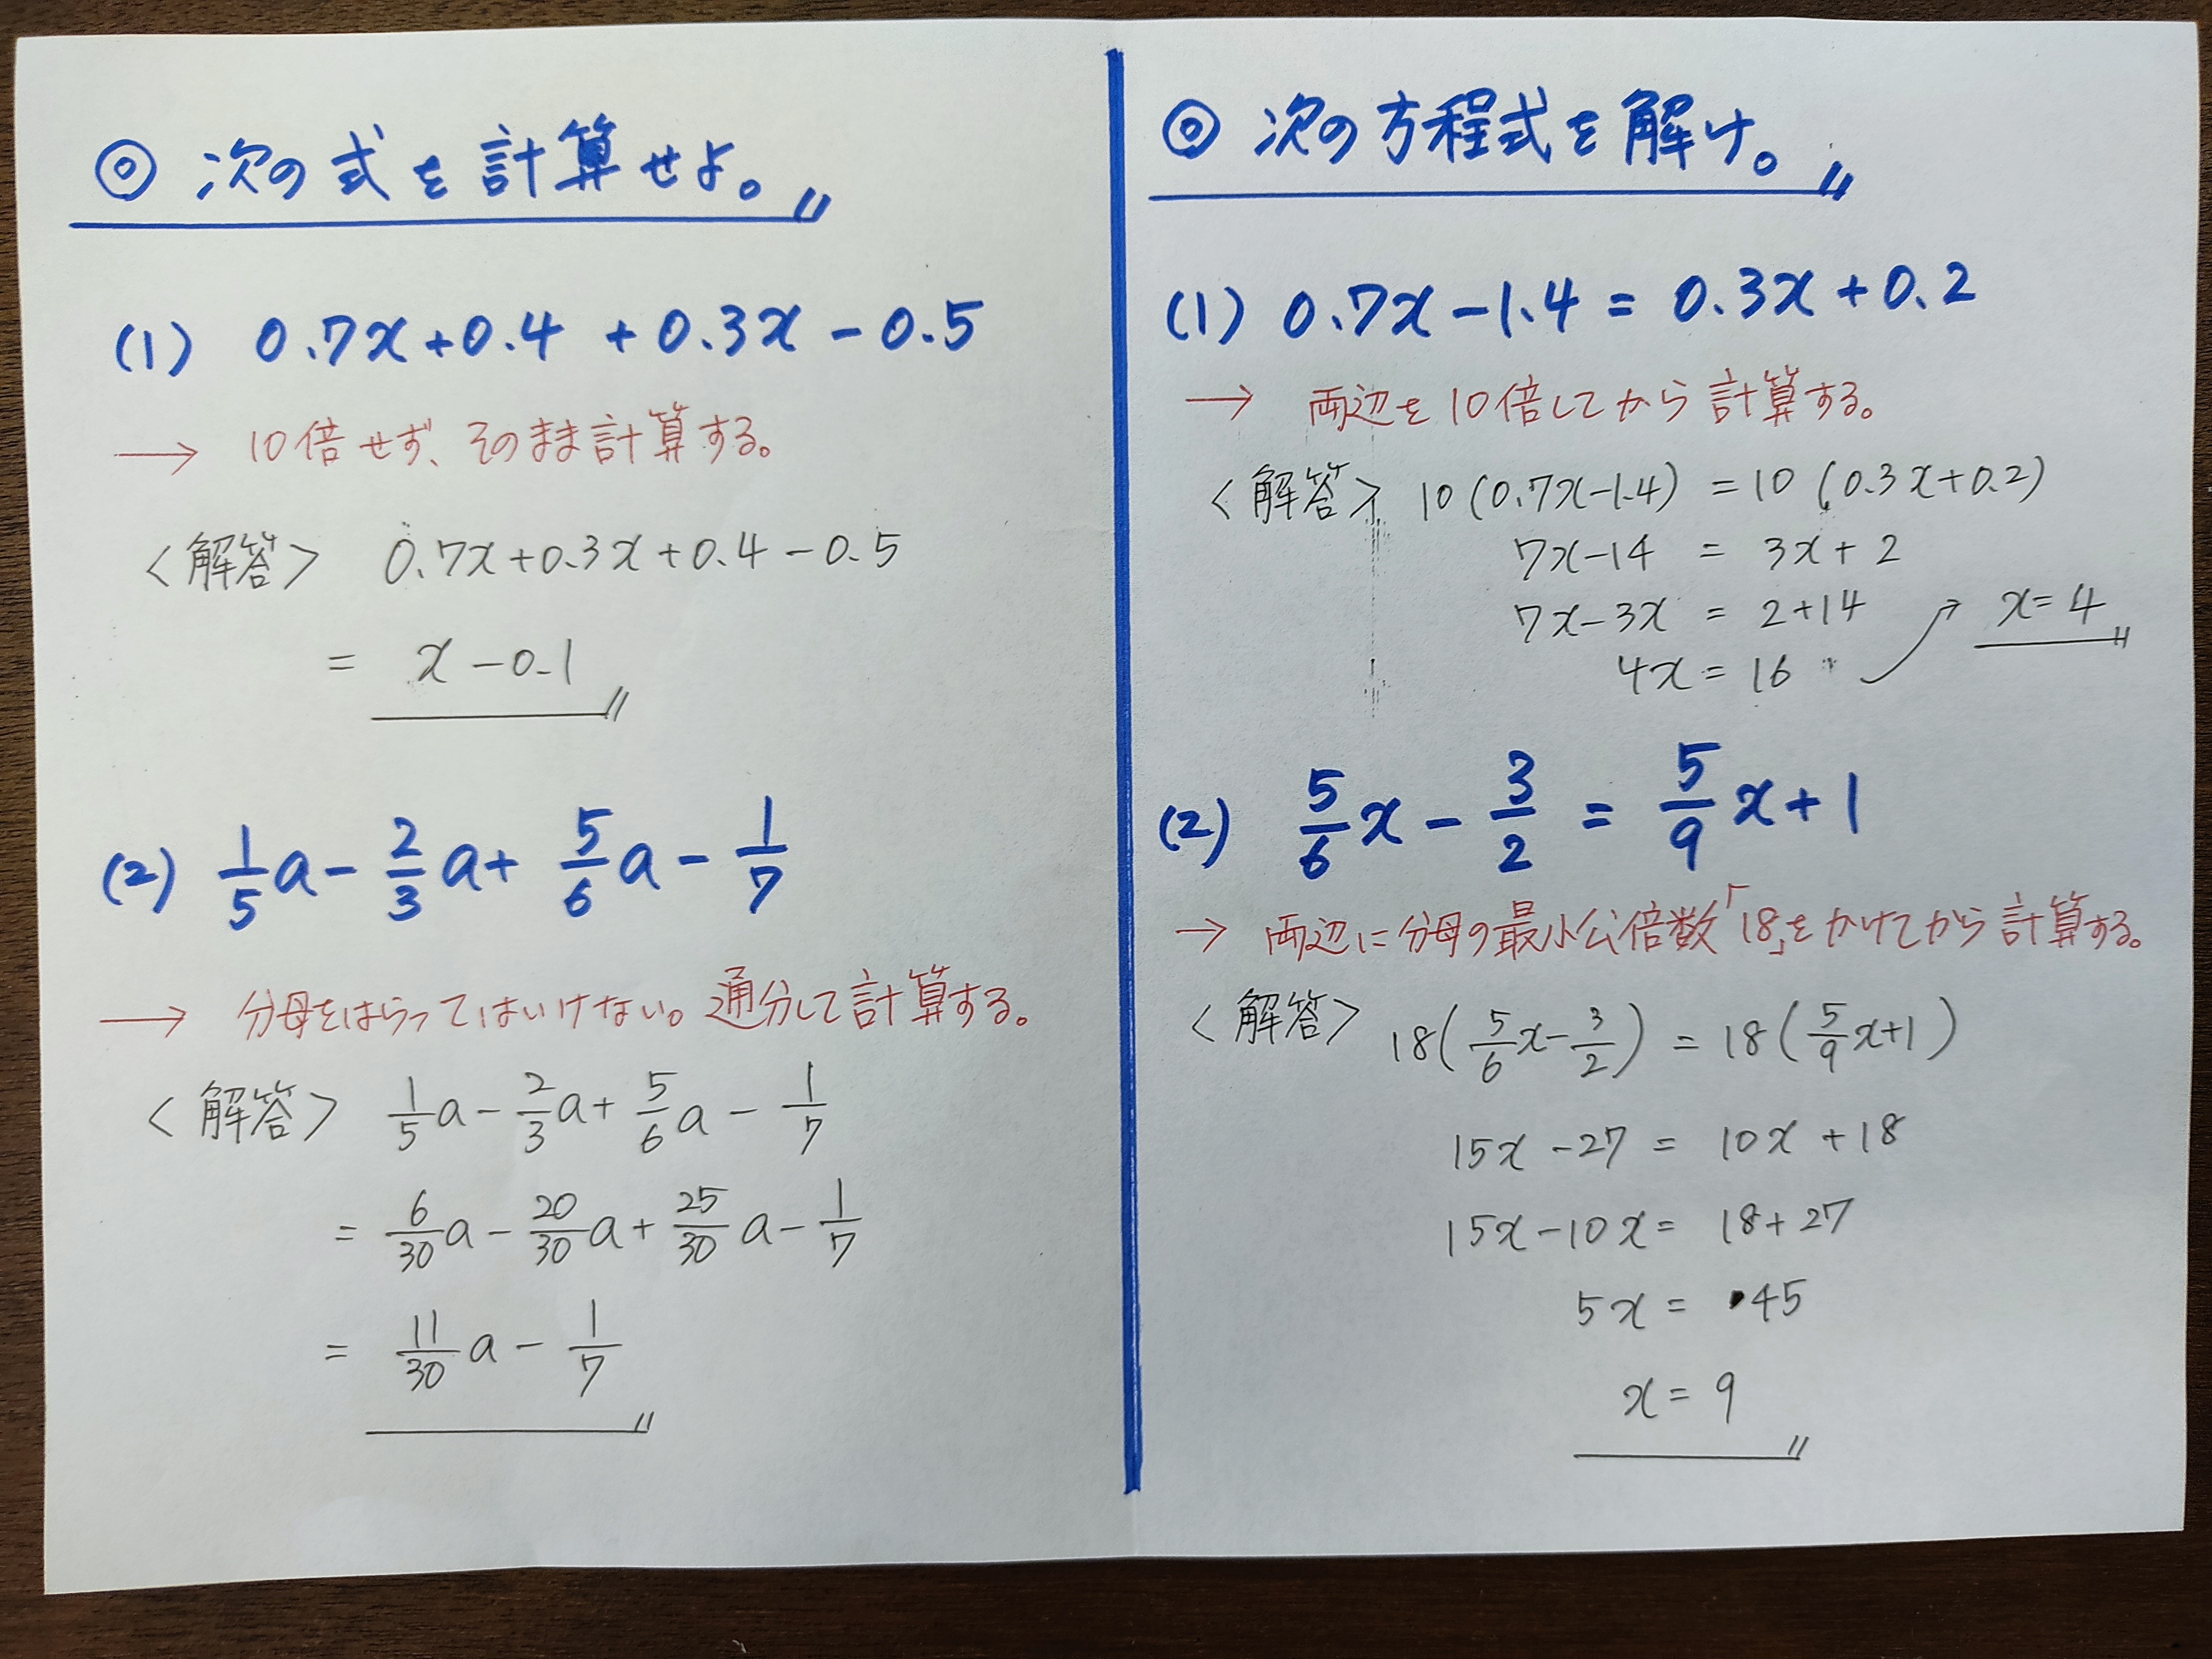 ◎ 次の式を計算せよ。
(1) 0.7x+0.4+0.3x-0.5
→ 10倍せず、そのまま計算する。
<解答> 0.7x+0.3x+0.4-0.5
= x-0.1
(2) 1/5 a - 2/3 a + 5/6 a - 1/7
→ 分母をはらってはいけない。通分して計算する。
<解答> 1/5 a - 2/3 a + 5/6 a - 1/7
= 6/30 a - 20/30 a + 25/30 a - 1/7
= 11/30 a - 1/7
◎ 次の方程式を解け。
(1) 0.7x-1.4=0.3x+0.2
→ 両辺を10倍してから計算する。
<解答> 10(0.7x-1.4)=10(0.3x+0.2)
7x-14=3x+2
7x-3x=2+14
4x=16
x=4
(2) 5/6 x - 3/2 = 5/9 x + 1
→ 両辺に分母の最小公倍数「18」をかけてから計算する。
<解答> 18(5/6 x - 3/2) = 18(5/9 x + 1)
15x-27=10x+18
15x-10x=18+27
5x=45
x=9